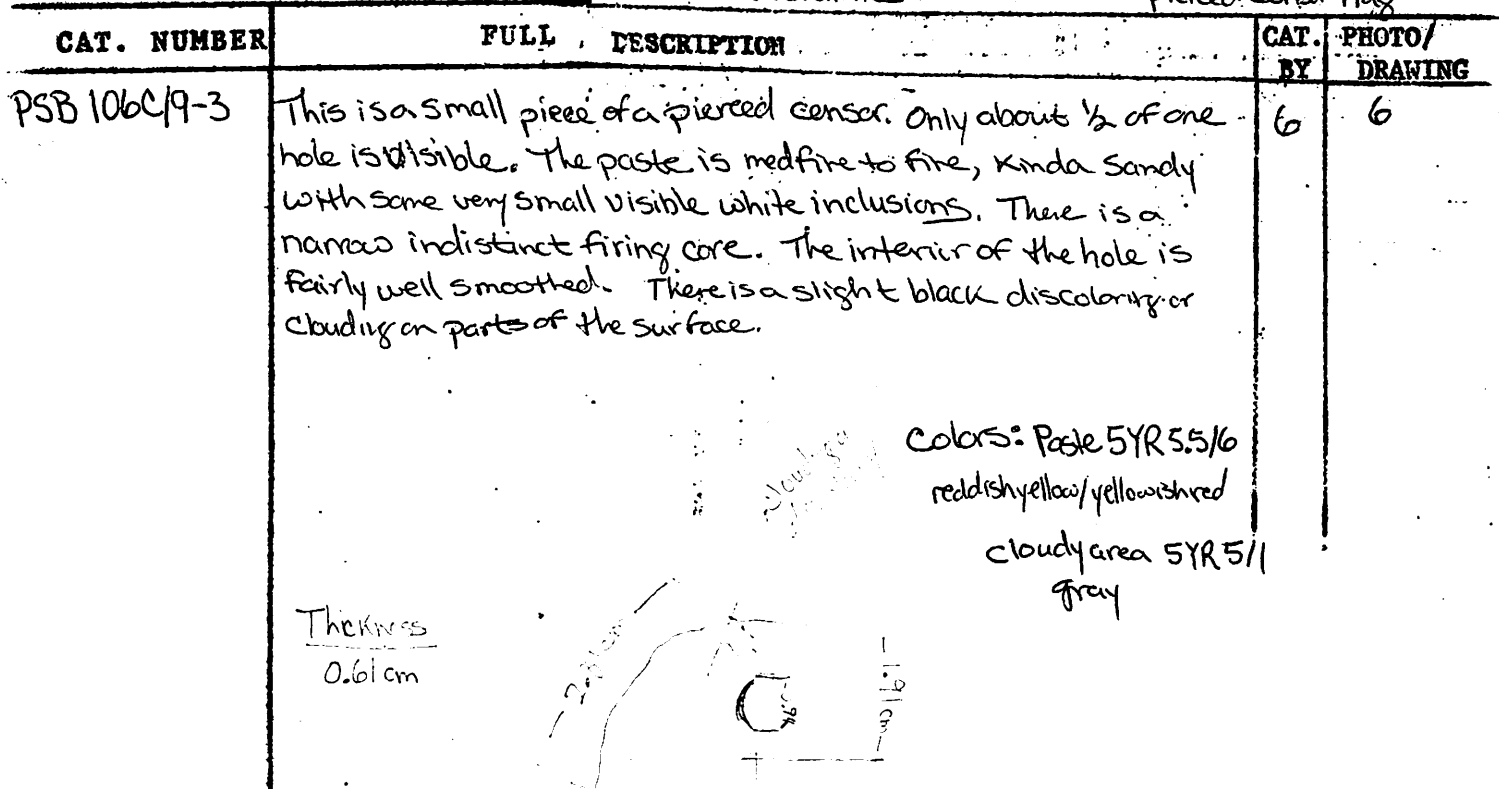 pierced censor frag
CAT. NUMBER FULL DESCRIPTION CAT. BY PHOTO/ DRAWING
PSB 106C/9-3 This is a small piece of a pierced censor. Only about ½ of one 6 6
hole is visible. The paste is medfine to fine, kinda sandy
with some very small visible white inclusions. There is a
narrow indistinct firing core. The interior of the hole is
fairly well smoothed. There is a slight black discoloring or
clouding on parts of the surface.
Colors: Paste 5YR 5.5/6
reddishyellow/yellowishred
cloudy area 5YR 5/1
gray
Thickness
0.61 cm
1.91 cm